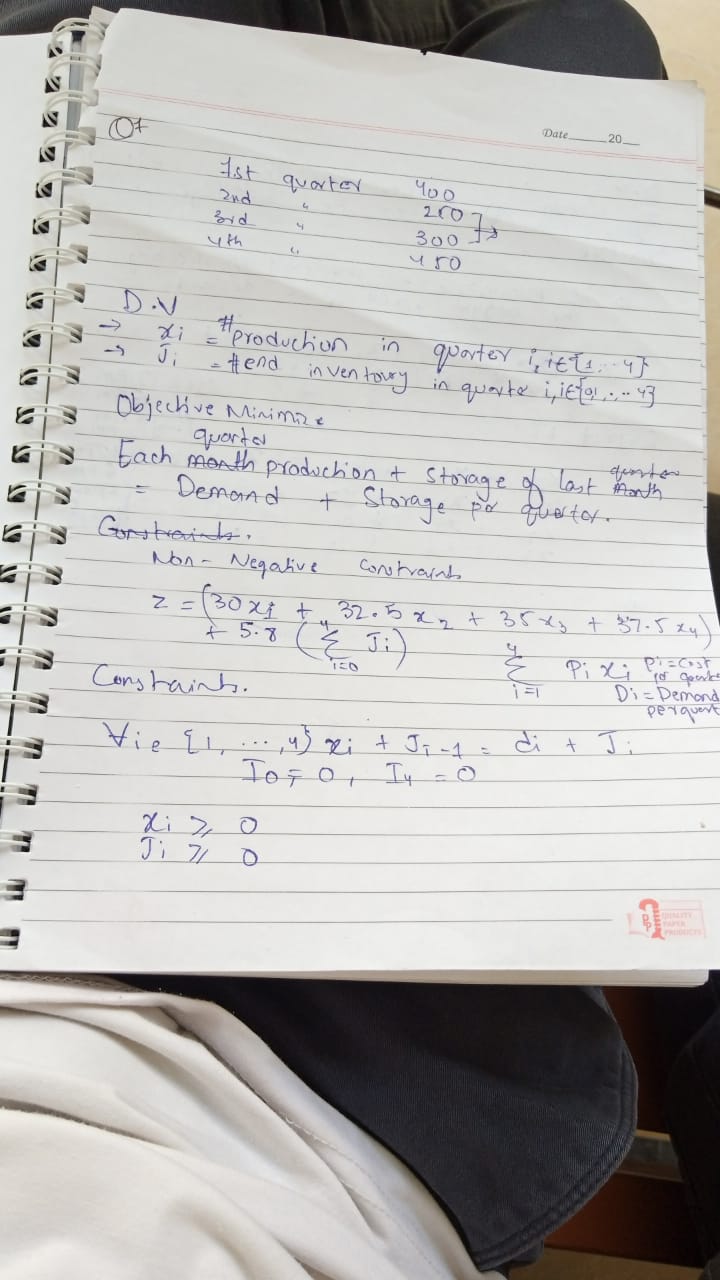 Date 20
Q1
1st quarter 400
2nd " 250
3rd " 300
4th " 450
D.V
→ xi = #production in quarter i, i∈{1...4}
→ Ji = #end inventoury in quarte i, i∈{0,...4}
Objective Minimize
quarter
Each month production + Storage of last month quarter
= Demand + Storage per quarter.
Constraints.
Non-Negative Constraints
z = (30x1 + 32.5x2 + 35x3 + 37.5x4)
+ 5.8 (4 Σ i=0 Ji)
4 Σ i=1 Pi xi Pi = cost for quarte
Di = Demand
per quart
Constraints.
∀i∈ {1, ..., 4} xi + Ji-1 = di + Ji
I0 = 0, I4 = 0
xi ≥ 0
Ji ≥ 0
QUALITY
PAPER
PRODUCTS